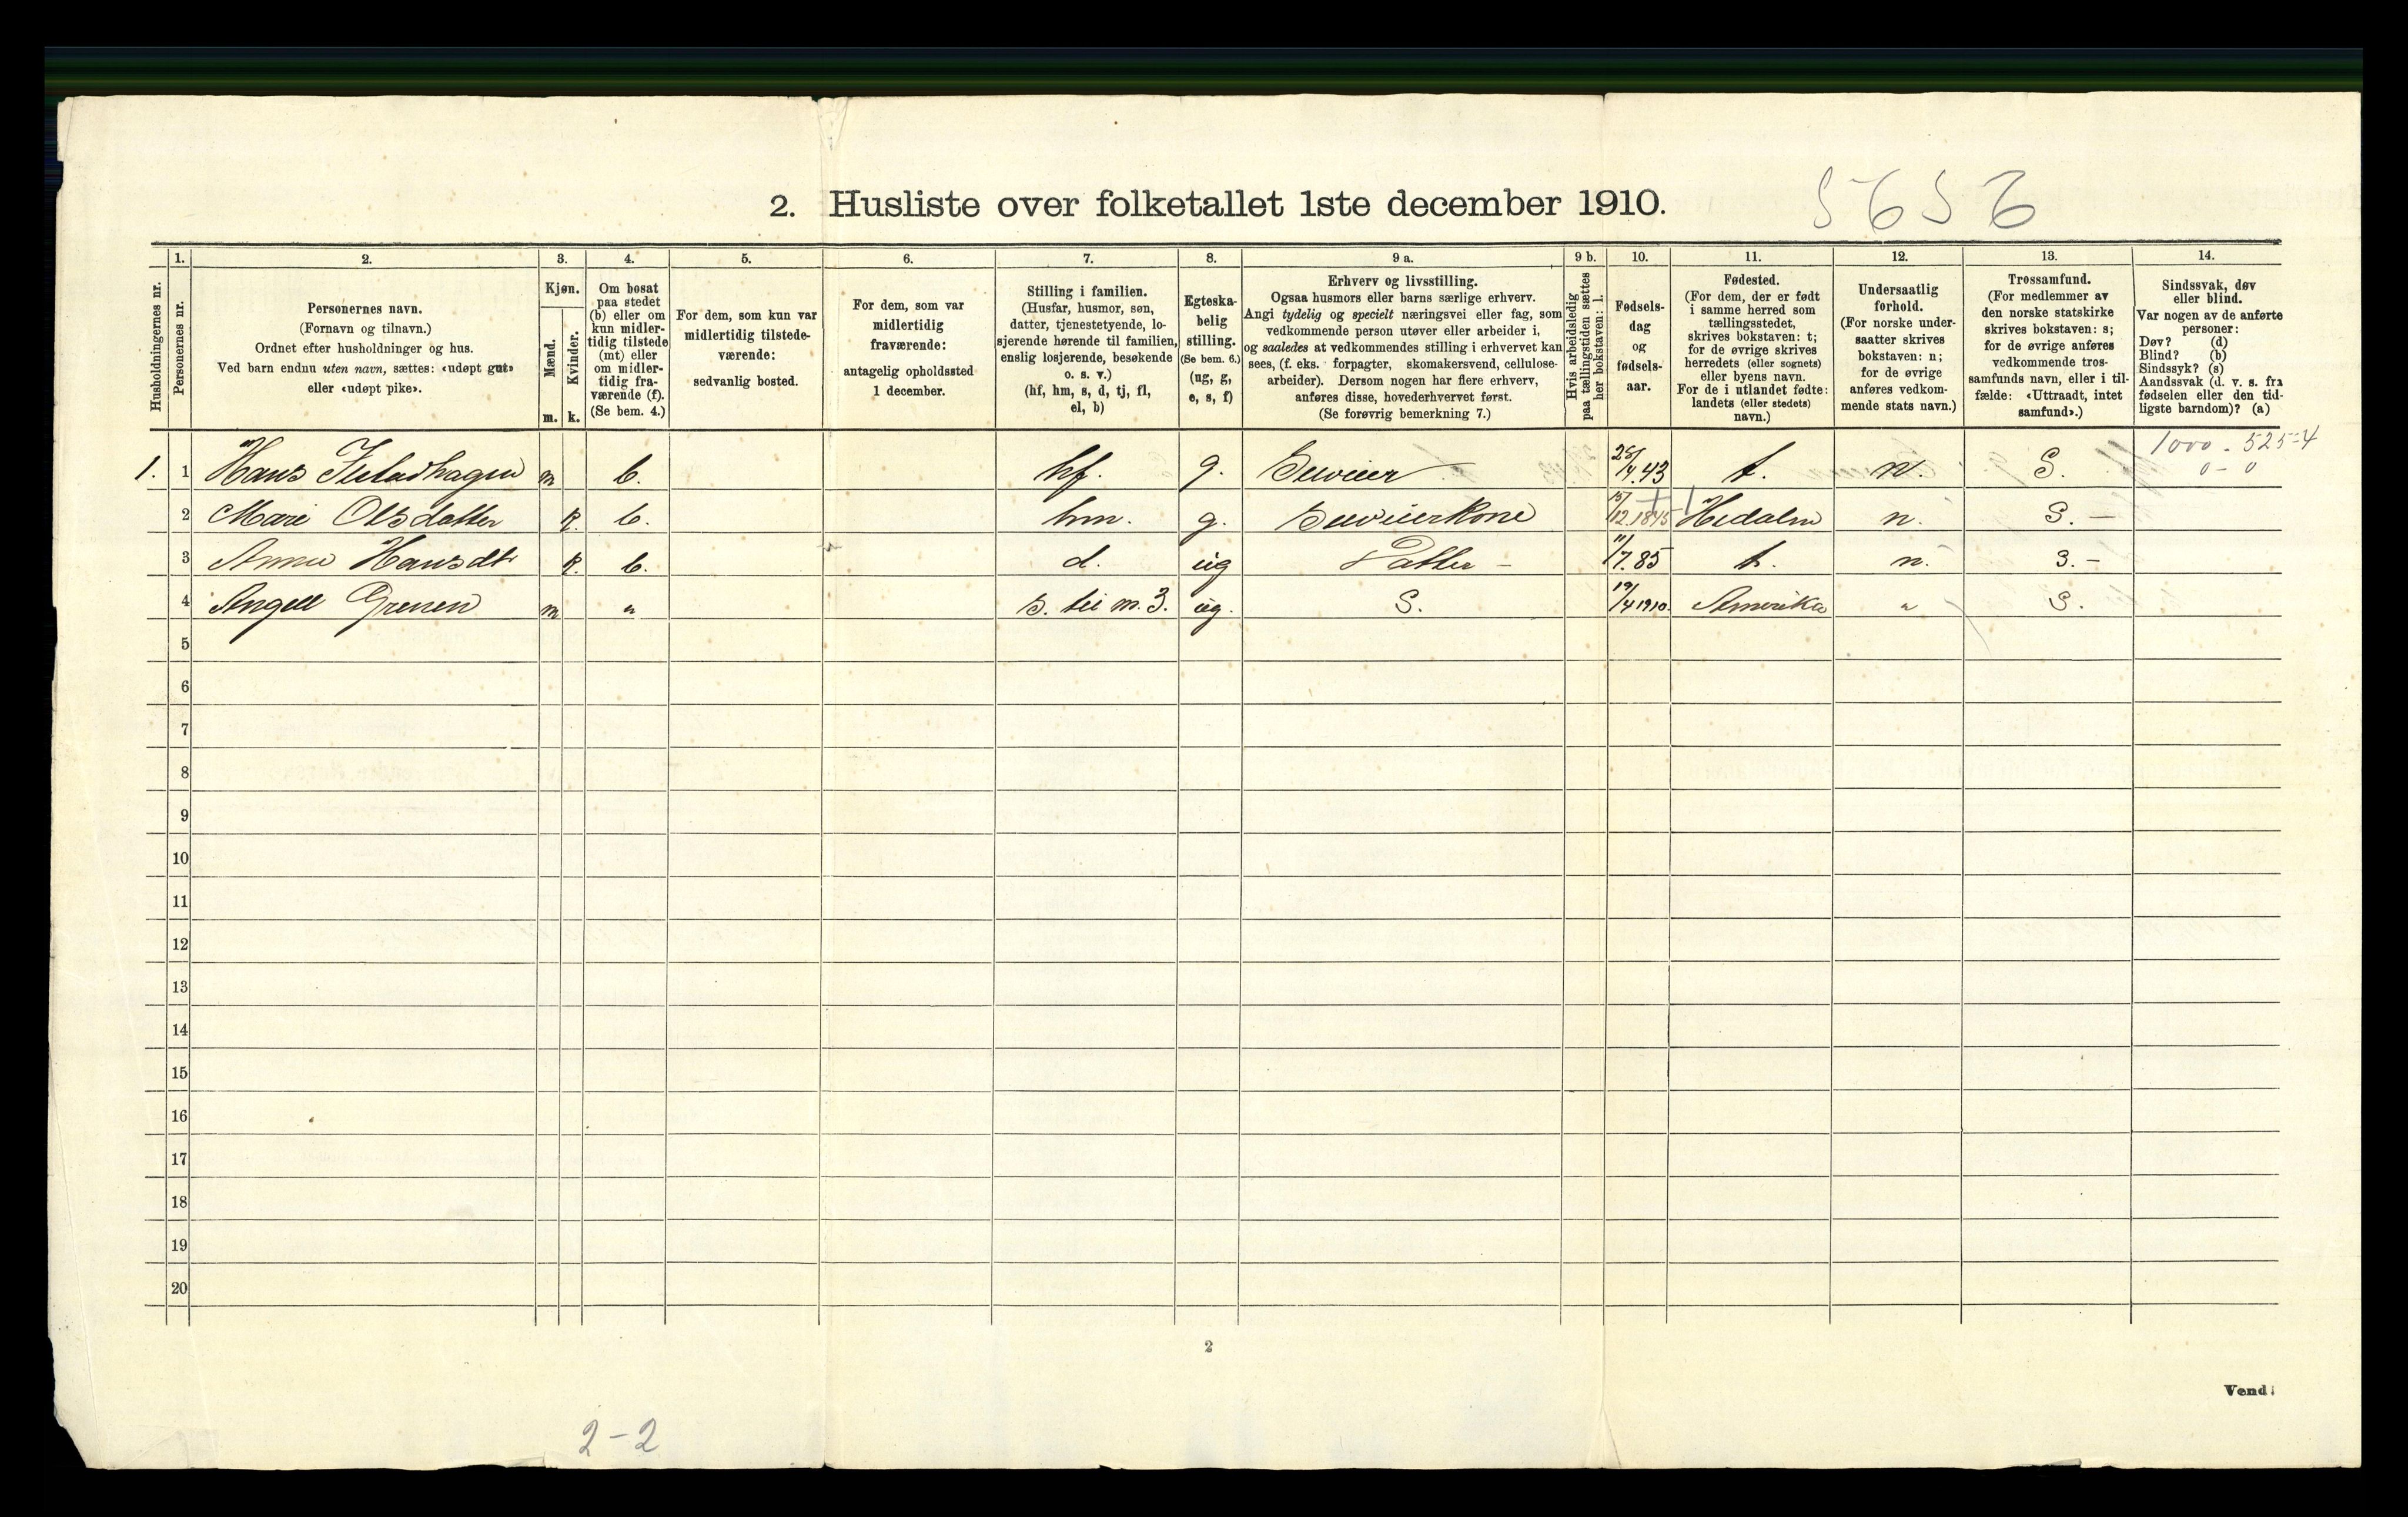 5656
2. Husliste over folketallet 1ste december 1910.
Husholdningernes nr.
1.
Personernes nr.
2.
Personernes navn.
(Fornavn og tilnavn.)
Ordnet efter husholdninger og hus.
Ved barn endnu uten navn, sættes: «udøpt gut»
eller «udøpt pike».
3.
Kjøn.
Mænd.
m.
Kvinder.
k.
4.
Om bosat
paa stedet
(b) eller om
kun midler-
tidig tilstede
(mt) eller
om midler-
tidig fra-
værende (f).
(Se bem. 4.)
5.
For dem, som kun var
midlertidig tilstede-
værende:
sedvanlig bosted.
6.
For dem, som var
midlertidig
fraværende:
antagelig opholdssted
1 december.
7.
Stilling i familien.
(Husfar, husmor, søn,
datter, tjenestetyende, lo-
sjerende hørende til familien,
enslig losjerende, besøkende
o. s. v.)
(hf, hm, s, d, tj, fl,
el, b)
8.
Egteska-
belig
stilling.
(Se bem. 6.)
(ug, g,
e, s, f)
9 a.
Erhverv og livsstilling.
Ogsaa husmors eller barns særlige erhverv.
Angi tydelig og specielt næringsvei eller fag, som
vedkommende person utøver eller arbeider i,
og saaledes at vedkommendes stilling i erhvervet kan
sees, (f. eks. forpagter, skomakersvend, cellulose-
arbeider). Dersom nogen har flere erhverv,
anføres disse, hovederhvervet først.
(Se forøvrig bemerkning 7.)
9 b.
Hvis arbeidsledig
paa tællingstiden sættes
her bokstaven: l.
10.
Fødsels-
dag
og
fødsels-
aar.
11.
Fødested.
(For dem, der er født
i samme herred som
tællingsstedet,
skrives bokstaven: t;
for de øvrige skrives
herredets (eller sognets)
eller byens navn.
For de i utlandet fødte:
landets (eller stedets)
navn.)
12.
Undersaatlig
forhold.
(For norske under-
saatter skrives
bokstaven: n;
for de øvrige
anføres vedkom-
mende stats navn.)
13.
Trossamfund.
(For medlemmer av
den norske statskirke
skrives bokstaven: s;
for de øvrige anføres
vedkommende tros-
samfunds navn, eller i til-
fælde: «Uttraadt, intet
samfund».)
14.
Sindssvak, døv
eller blind.
Var nogen av de anførte
personer:
Døv? (d)
Blind? (b)
Sindssyk? (s)
Aandssvak (d. v. s. fra
fødselen eller den tid-
ligste barndom)? (a)
1. 1 Hans m b. hf. g. 4.43 t. n. S. 1000 - 525-4
0 - 0
2 Mari Olsdatter k. b. hm. g. 15/12.1845 Hedalen n. S. -
3 Anna Hansdtr k. b. d. ug Datter - 11/7.85 t. n. S. -
4 Angell Grenen m " s. til m. 3. ug. S. 19/4 1910. Amerika " S.
5
6
7
8
9
10
11
12
13
14
15
16
17
18
19
20
2
Vend!
2-2